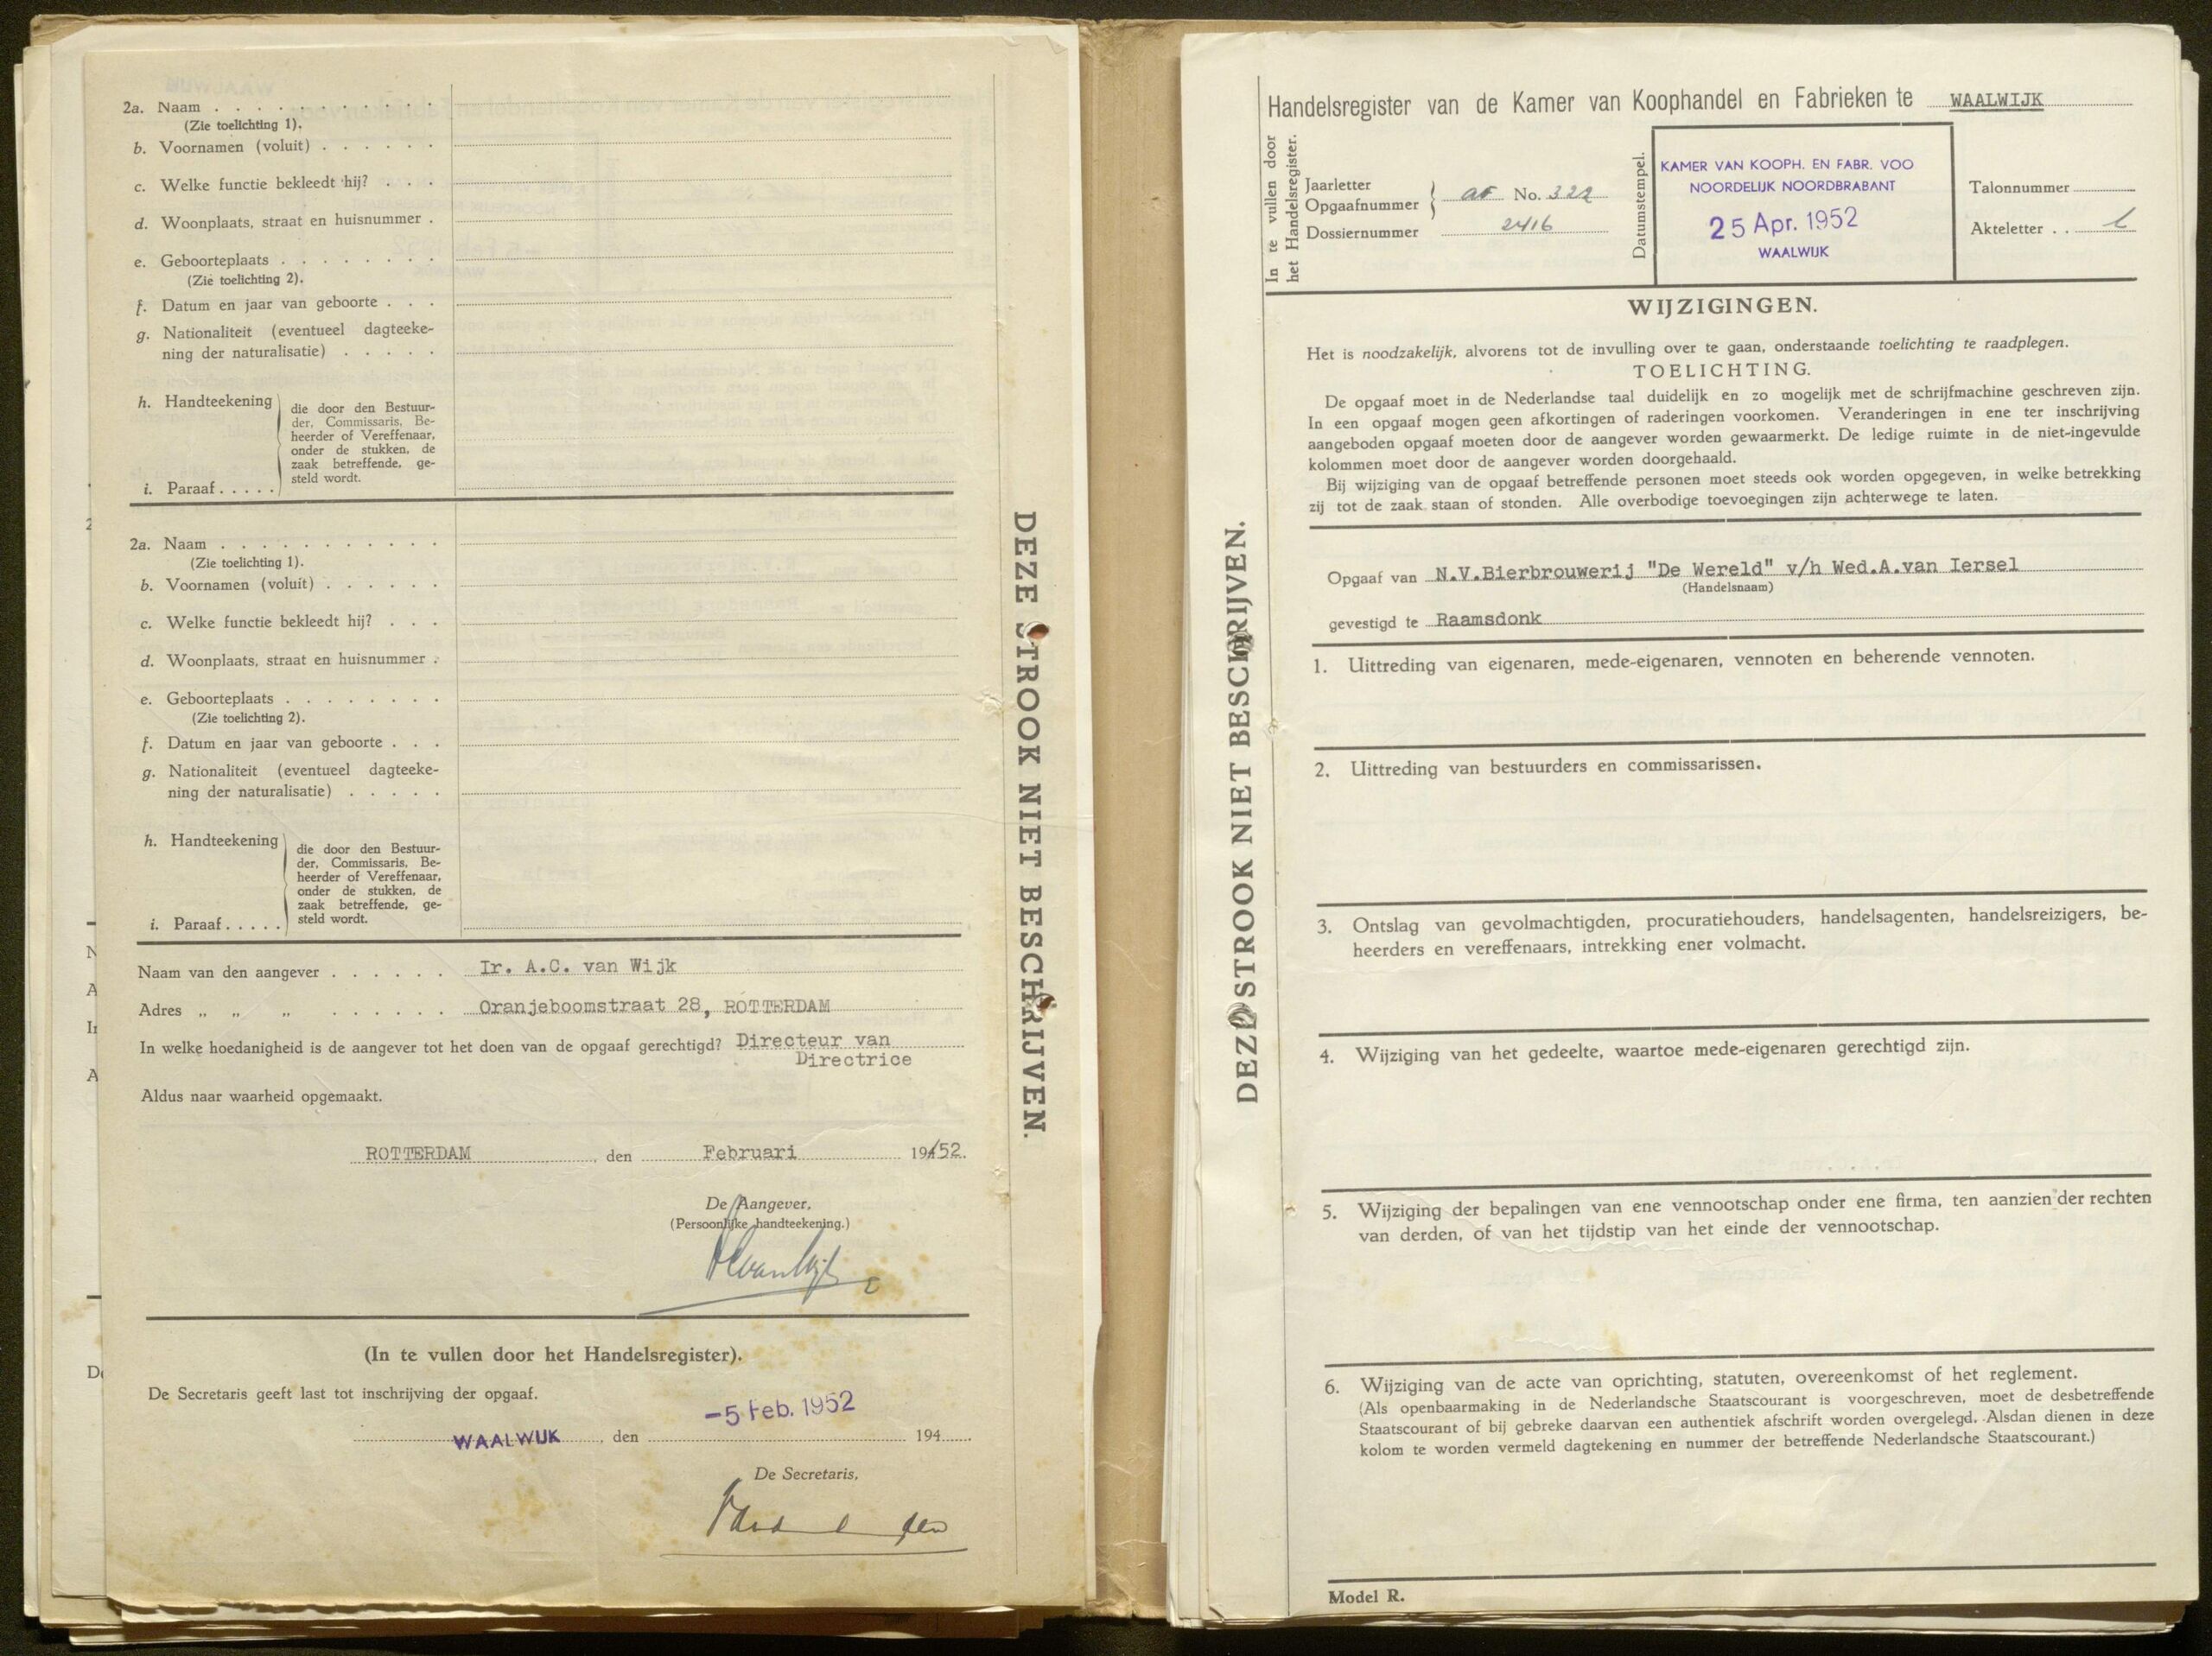 2a. Naam . . . . . . . . . . .
(Zie toelichting 1).
b. Voornamen (voluit) . . . . . .
c. Welke functie bekleedt hij? . . .
d. Woonplaats, straat en huisnummer .
e. Geboorteplaats . . . . . . . .
(Zie toelichting 2).
f. Datum en jaar van geboorte . . .
g. Nationaliteit (eventueel dagteeke-
ning der naturalisatie) . . . . .
h. Handteekening
die door den Bestuur-
der, Commissaris, Be-
heerder of Vereffenaar,
onder de stukken, de
zaak betreffende, ge-
steld wordt.
i. Paraaf . . . . .
2a. Naam . . . . . . . . . . .
(Zie toelichting 1).
b. Voornamen (voluit) . . . . . .
c. Welke functie bekleedt hij? . . .
d. Woonplaats, straat en huisnummer .
e. Geboorteplaats . . . . . . . .
(Zie toelichting 2).
f. Datum en jaar van geboorte . . .
g. Nationaliteit (eventueel dagteeke-
ning der naturalisatie) . . . . .
h. Handteekening
die door den Bestuur-
der, Commissaris, Be-
heerder of Vereffenaar,
onder de stukken, de
zaak betreffende, ge-
steld wordt.
i. Paraaf . . . . .
Naam van den aangever . . . . . . Ir. A.C. van Wijk
Adres „ „ „ . . . . . . Oranjeboomstraat 28, ROTTERDAM
In welke hoedanigheid is de aangever tot het doen van de opgaaf gerechtigd? Directeur van
Directrice
Aldus naar waarheid opgemaakt.
ROTTERDAM den Februari 19452.
De Aangever,
(Persoonlijke handteekening.)
ACvanWijk
(In te vullen door het Handelsregister).
De Secretaris geeft last tot inschrijving der opgaaf.
-5 Feb. 1952
WAALWIJK, den 194
De Secretaris,
DEZE STROOK NIET BESCHRIJVEN.
DEZE STROOK NIET BESCHRIJVEN.
Handelsregister van de Kamer van Koophandel en Fabrieken te WAALWIJK
In te vullen door
het Handelsregister.
Jaarletter
Opgaafnummer
No. 322
Dossiernummer 2416
Datumstempel.
KAMER VAN KOOPH. EN FABR. VOO
NOORDELIJK NOORDBRABANT
25 Apr. 1952
WAALWIJK
Talonnummer
Akteletter . . l
WIJZIGINGEN.
Het is noodzakelijk, alvorens tot de invulling over te gaan, onderstaande toelichting te raadplegen.
TOELICHTING.
De opgaaf moet in de Nederlandse taal duidelijk en zo mogelijk met de schrijfmachine geschreven zijn.
In een opgaaf mogen geen afkortingen of raderingen voorkomen. Veranderingen in ene ter inschrijving
aangeboden opgaaf moeten door de aangever worden gewaarmerkt. De ledige ruimte in de niet-ingevulde
kolommen moet door de aangever worden doorgehaald.
Bij wijziging van de opgaaf betreffende personen moet steeds ook worden opgegeven, in welke betrekking
zij tot de zaak staan of stonden. Alle overbodige toevoegingen zijn achterwege te laten.
Opgaaf van N.V.Bierbrouwerij "De Wereld" v/h Wed.A.van Iersel
(Handelsnaam)
gevestigd te Raamsdonk
1. Uittreding van eigenaren, mede-eigenaren, vennoten en beherende vennoten.
2. Uittreding van bestuurders en commissarissen.
3. Ontslag van gevolmachtigden, procuratiehouders, handelsagenten, handelsreizigers, be-
heerders en vereffenaars, intrekking ener volmacht.
4. Wijziging van het gedeelte, waartoe mede-eigenaren gerechtigd zijn.
5. Wijziging der bepalingen van ene vennootschap onder ene firma, ten aanzien der rechten
van derden, of van het tijdstip van het einde der vennootschap.
6. Wijziging van de acte van oprichting, statuten, overeenkomst of het reglement.
(Als openbaarmaking in de Nederlandsche Staatscourant is voorgeschreven, moet de desbetreffende
Staatscourant of bij gebreke daarvan een authentiek afschrift worden overgelegd. Alsdan dienen in deze
kolom te worden vermeld dagtekening en nummer der betreffende Nederlandsche Staatscourant.)
Model R.